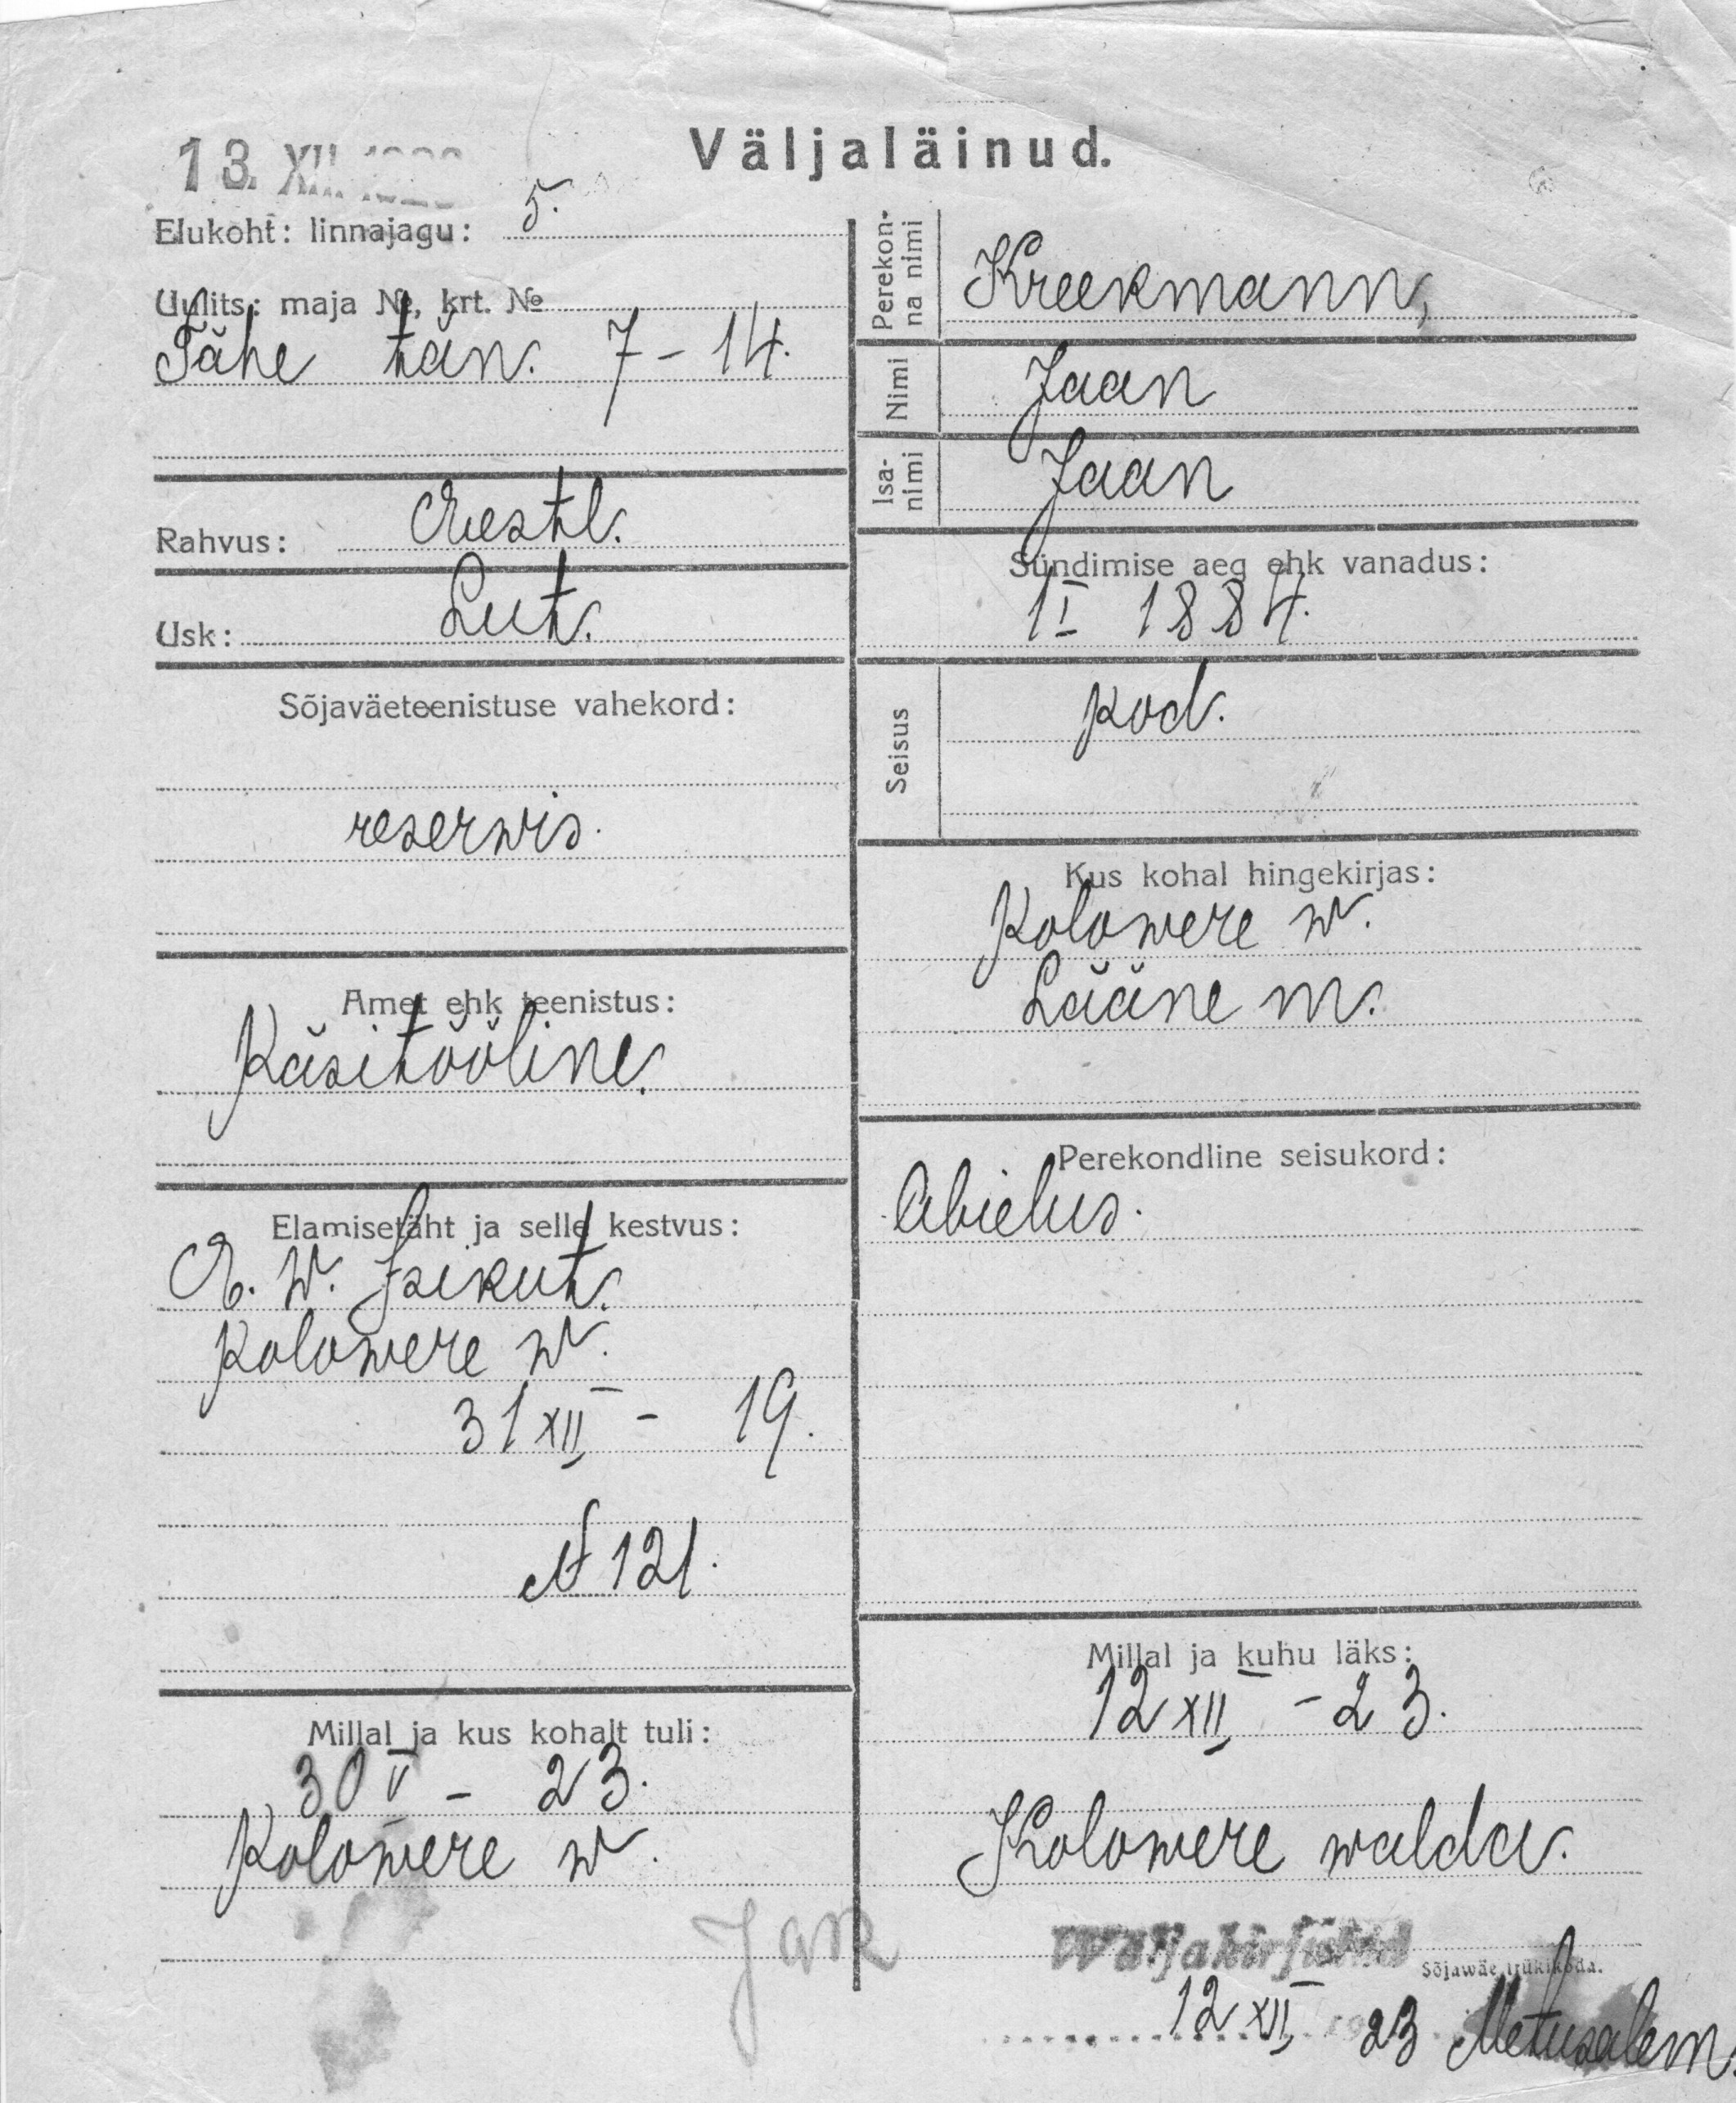 Väljaläinud.
13. XII.
Elukoht: linnajagu: 5.
Uulits: maja №, krt. №
Tähe tän. 7 - 14.
Rahvus: Eestl.
Usk: Lut.
Sõjaväeteenistuse vahekord:
reserwis.
Amet ehk teenistus:
Käsitööline.
Elamisetäht ja selle kestvus:
E. W. Isikut.
Kolowere w.
31 XII - 19.
N 121.
Millal ja kus kohalt tuli:
30 V - 23.
Kolowere w.
Perekonna nimi
Kreekmann,
Nimi
Jaan
Isanimi
Jaan
Sündimise aeg ehk vanadus:
1 I 1884.
Seisus
kod.
Kus kohal hingekirjas:
Kolowere w.
Lääne m.
Perekondline seisukord:
Abielus.
Millal ja kuhu läks:
12 XII - 23.
Kolowere walda.
Jank
Wäljakirjutud
Sõjawäe trükikoda.
12 XII 23 Metusalem.